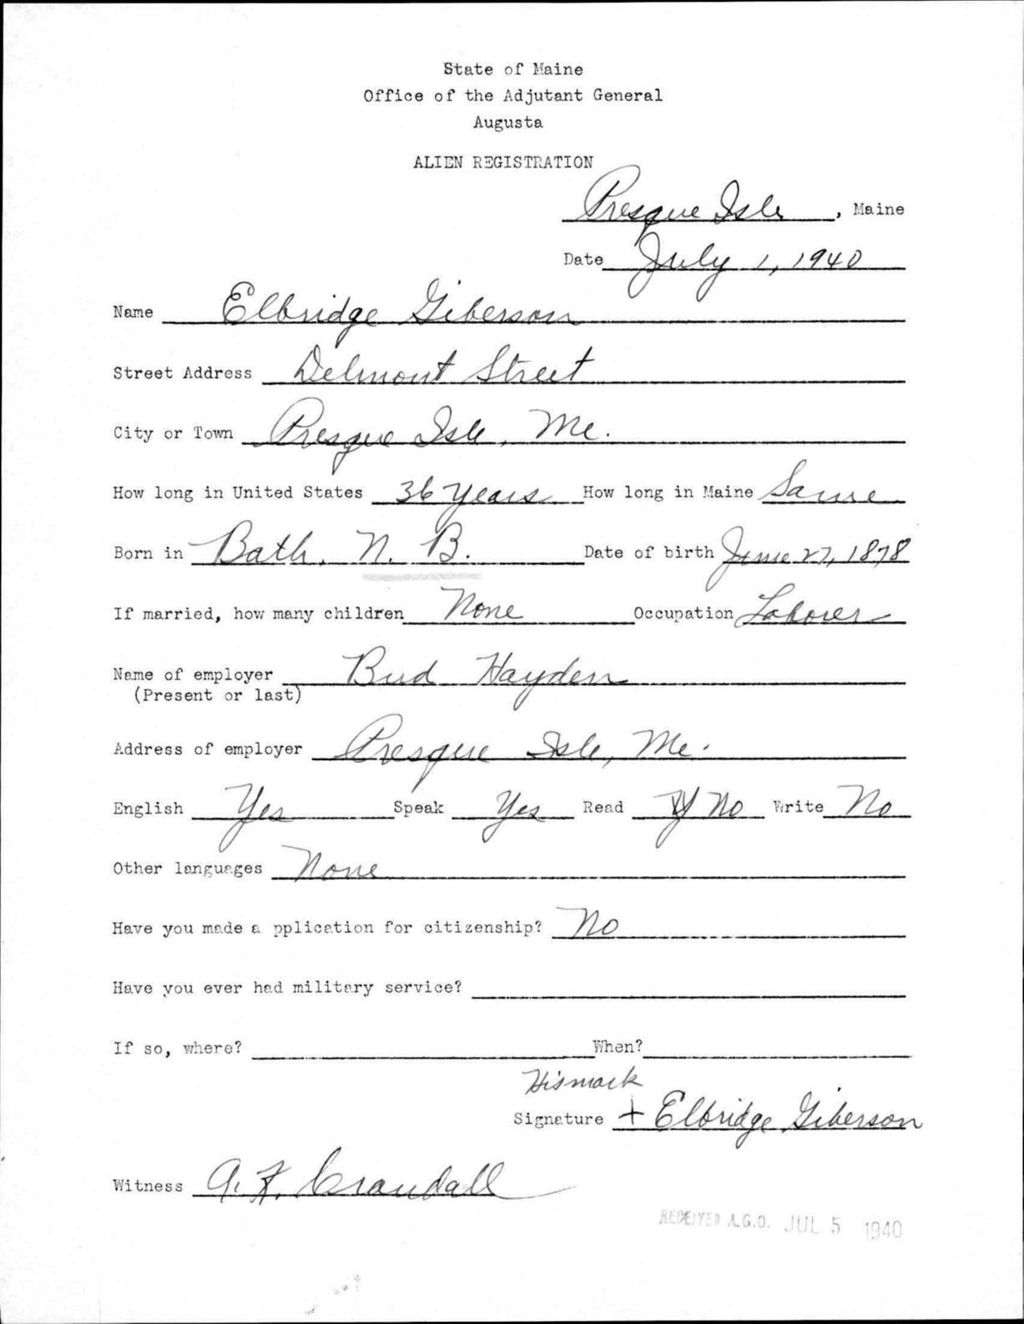 State of Maine
Office of the Adjutant General
Augusta
ALIEN REGISTRATION
Presque Isle, Maine
Date July 1, 1940
Name Elbridge Giberson
Street Address Delmont Street
City or Town Presque Isle, Me.
How long in United States 36 years How long in Maine Same
Born in Bath, N. B. Date of birth June 27, 1878
If married, how many children None Occupation Laborer
Name of employer Bud Hayden
(Present or last)
Address of employer Presque Isle, Me.
English Yes Speak Yes Read No Write No
Other languages None
Have you made a pplication for citizenship? No
Have you ever had military service?
If so, where? When?
Hismark
Signature + Elbridge Giberson
Witness A. F. Crandall
RECEIVED A.G.O. JUL 5 1940